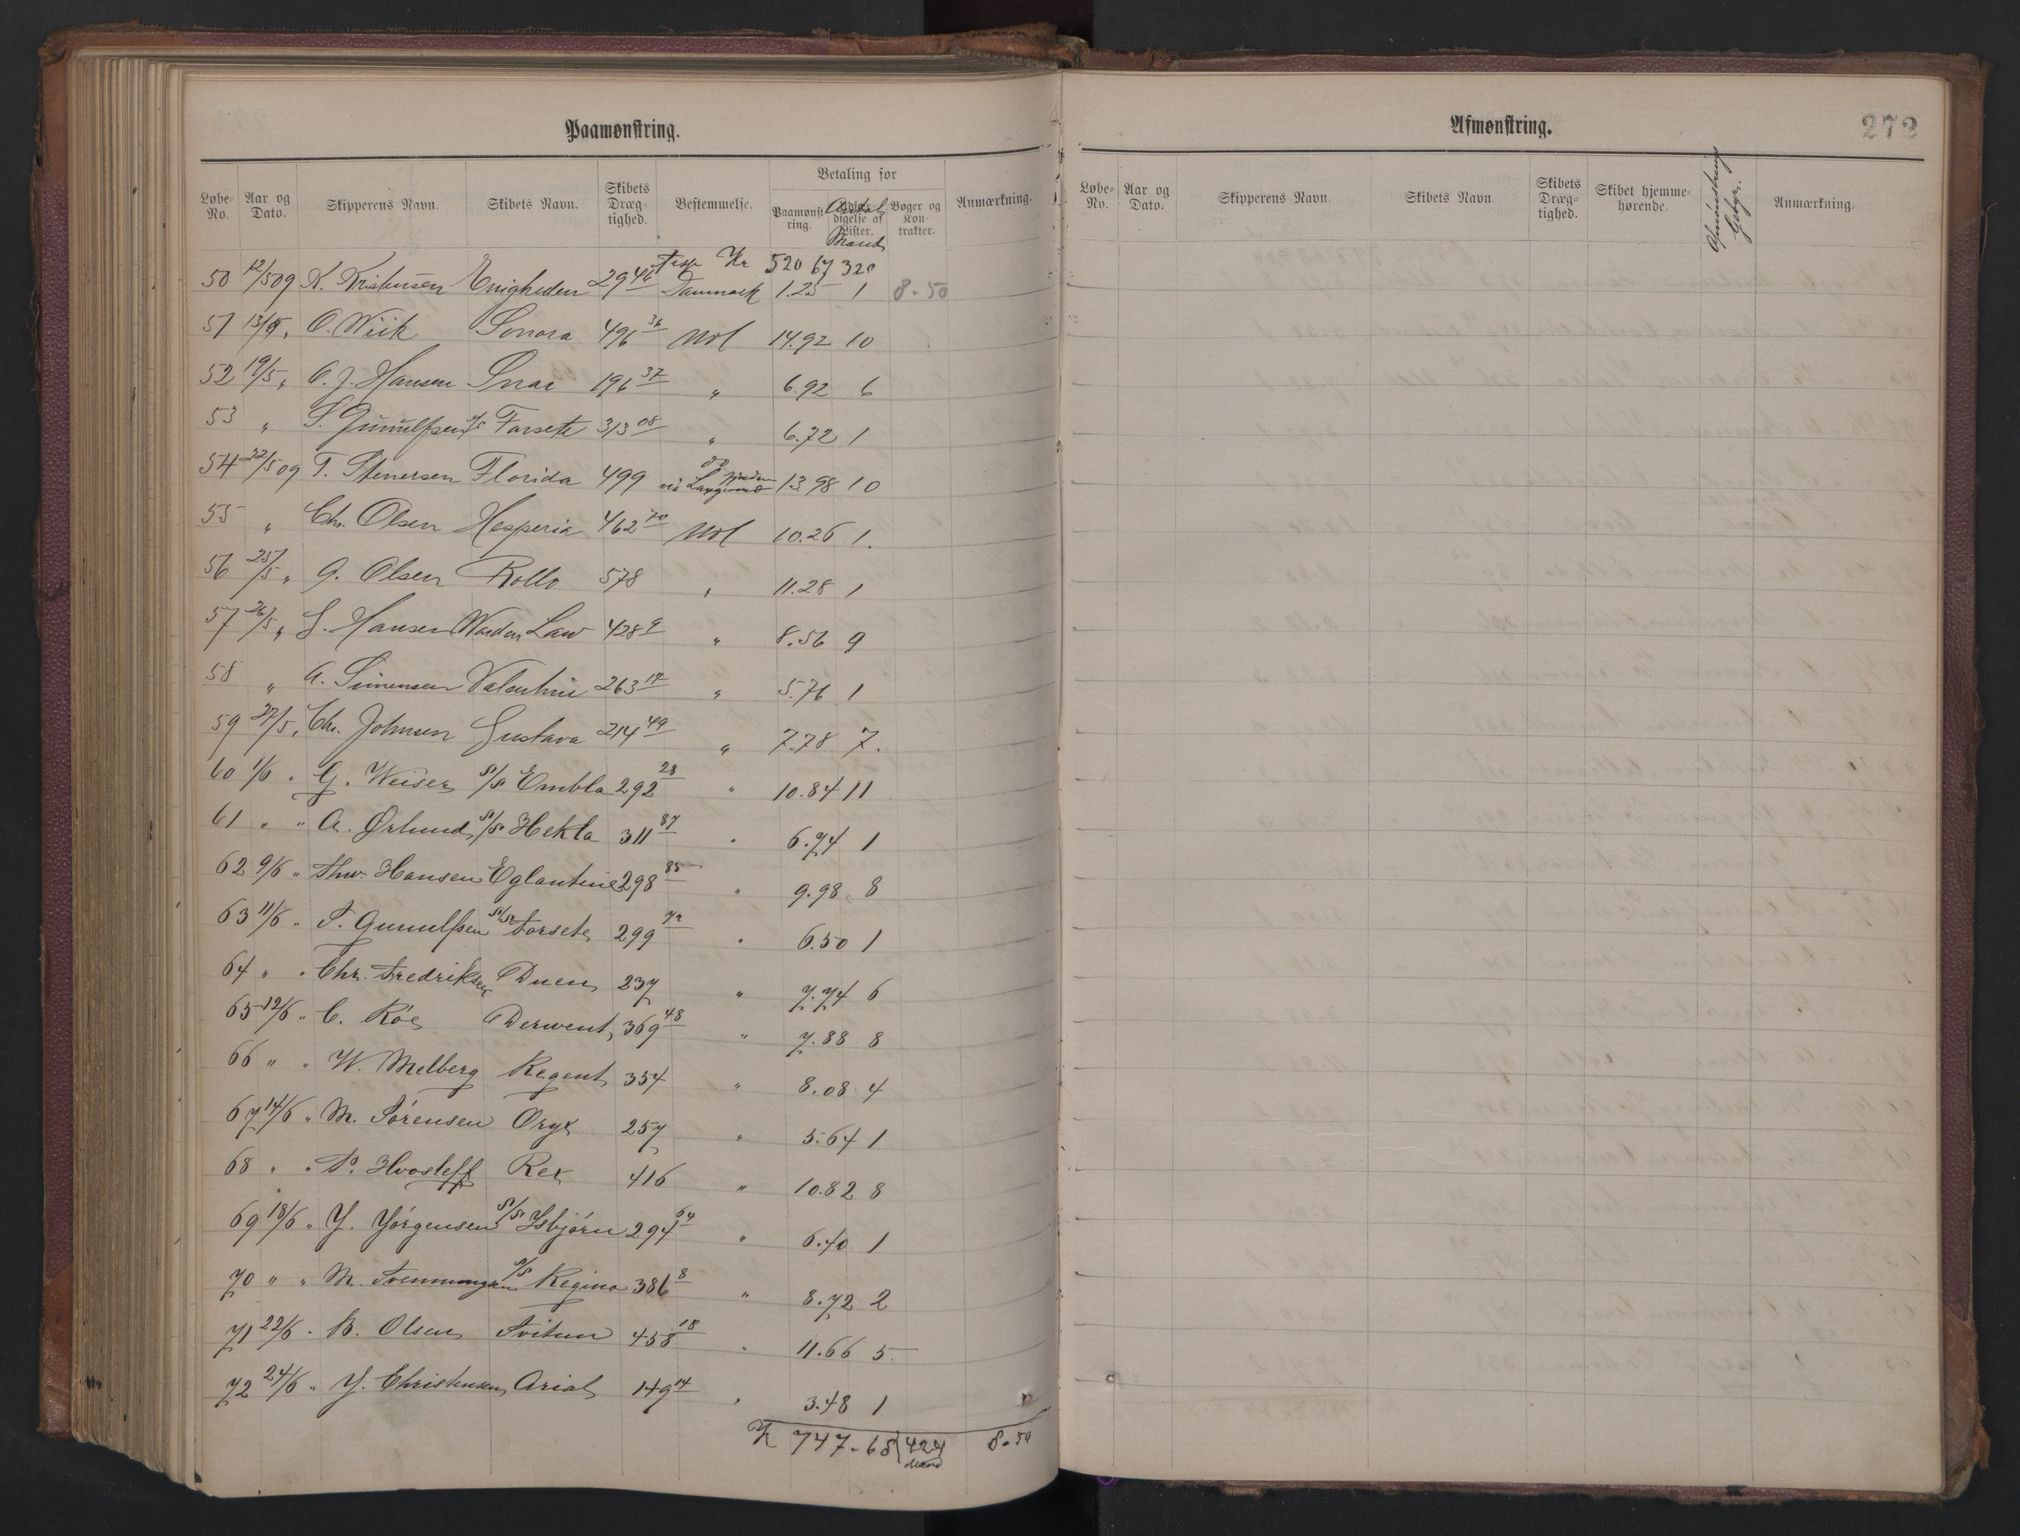 Paamønstring.
Løbe-No. Aar og Dato. Skipperens Navn. Skibets Navn. Skibets Dræg-tighed. Bestemmelse. Betaling for Paamønst-ring. Antal Mand digelse af Lister. Bøger og Kon-trakter. Anmærkning.
Kr 520 67 320
50 12/5 09 N. Kristensen Enigheden 29 46 Danmark 1.25 1 8.50
51 13/5 " O. Wiik Sonora 496 36 Udl 14.92 10
52 19/5 " C. J. Hansen Snar 196 37 " 6.92 6
53 " S. Gunulfsen s/s Forsete 313 08 " 6.72 1
54 22/5 09 T. Stenersen Florida 499 13.98 10
55 " Chr. Olsen Hesperia 462 70 Udl 10.26 1.
56 25/5 " G. Olsen Rollo 578 " 11.28 1
57 26/5 " S. Hansen Warden Law 428 9 " 8.56 9
58 " A. Simensen Valentine 263 17 " 5.76 1
59 27/5 " Chr. Johnsen Gustava 214 49 " 7.78 7.
60 1/6 " G. Weiser S/S Embla 292 28 " 10.84 11
61 " " A. Ørlund S/S Hekla 311 87 " 6.74 1
62 9/6 " Thv. Hansen Eglantine 298 85 " 9.98 8
63 11/6 " S. Gunulfsen S/S Forsete 299 72 " 6.50 1
64 " " Chr. Fredriksen Duen 237 " 7.74 6
65 12/6 " C. Røe Derwent 369 48 " 7.88 8
66 " " W. Melberg Regent 354 " 8.08 4
67 14/6 " M. Sørensen Oryx 257 " 5.64 1
68 " " P. Hvosleff Rex 416 " 10.82 8
69 18/6 " J. Jørgensen S/S Isbjørn 294 64 " 6.40 1
70 " " M. Svennungsen S/S Regina 386 8 " 8.72 2
71 22/6 " B. Olsen Svitun 458 18 " 11.66 5.
72 24/6 " J. Christensen Arial 149 14 " 3.48 1
Kr 747.68 424 Mand 8.50
Afmønstring.
272
Løbe-No. Aar og Dato. Skipperens Navn. Skibets Navn. Skibets Dræg-tighed. Skibet hjemme-hørende. Afmønstrings Gebyr. Anmærkning.